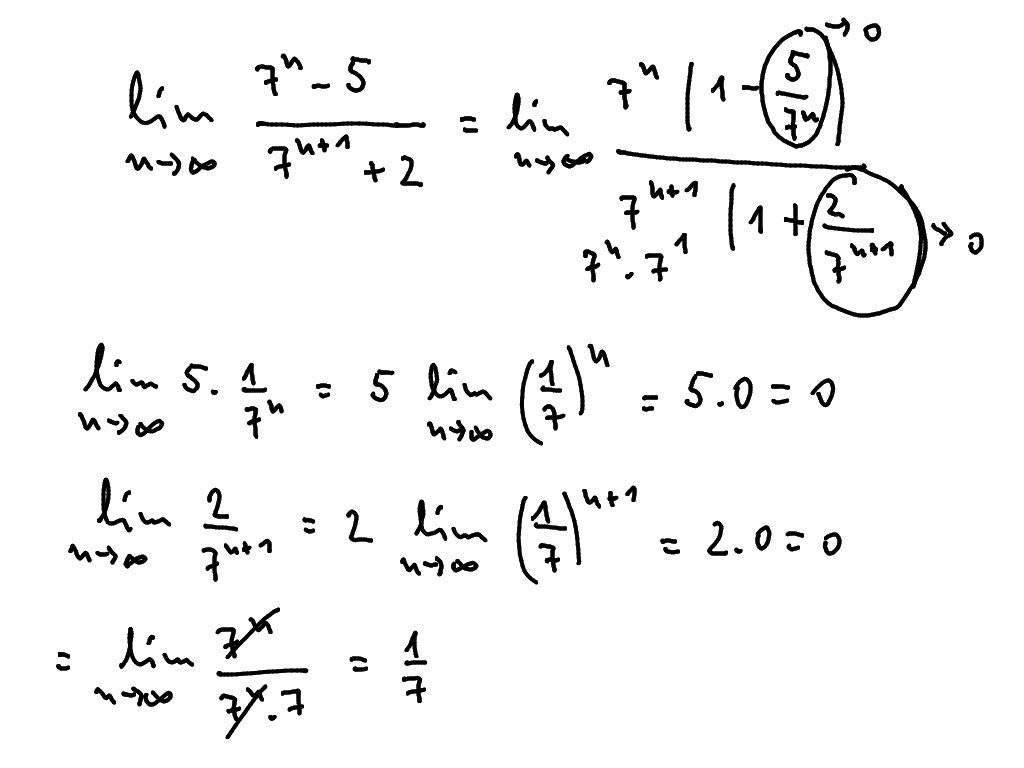 lim n→∞ (7^n - 5)/(7^(n+1) + 2) = lim n→∞ 7^n |1 - 5/7^n| → 0 / 7^(n+1) |1 + 2/7^(n+1) → 0
7^n . 7^1
lim n→∞ 5 . 1/7^n = 5 lim n→∞ (1/7)^n = 5 . 0 = 0
lim n→∞ 2/7^(n+1) = 2 lim n→∞ (1/7)^(n+1) = 2 . 0 = 0
= lim n→∞ 7^n/(7^n . 7) = 1/7